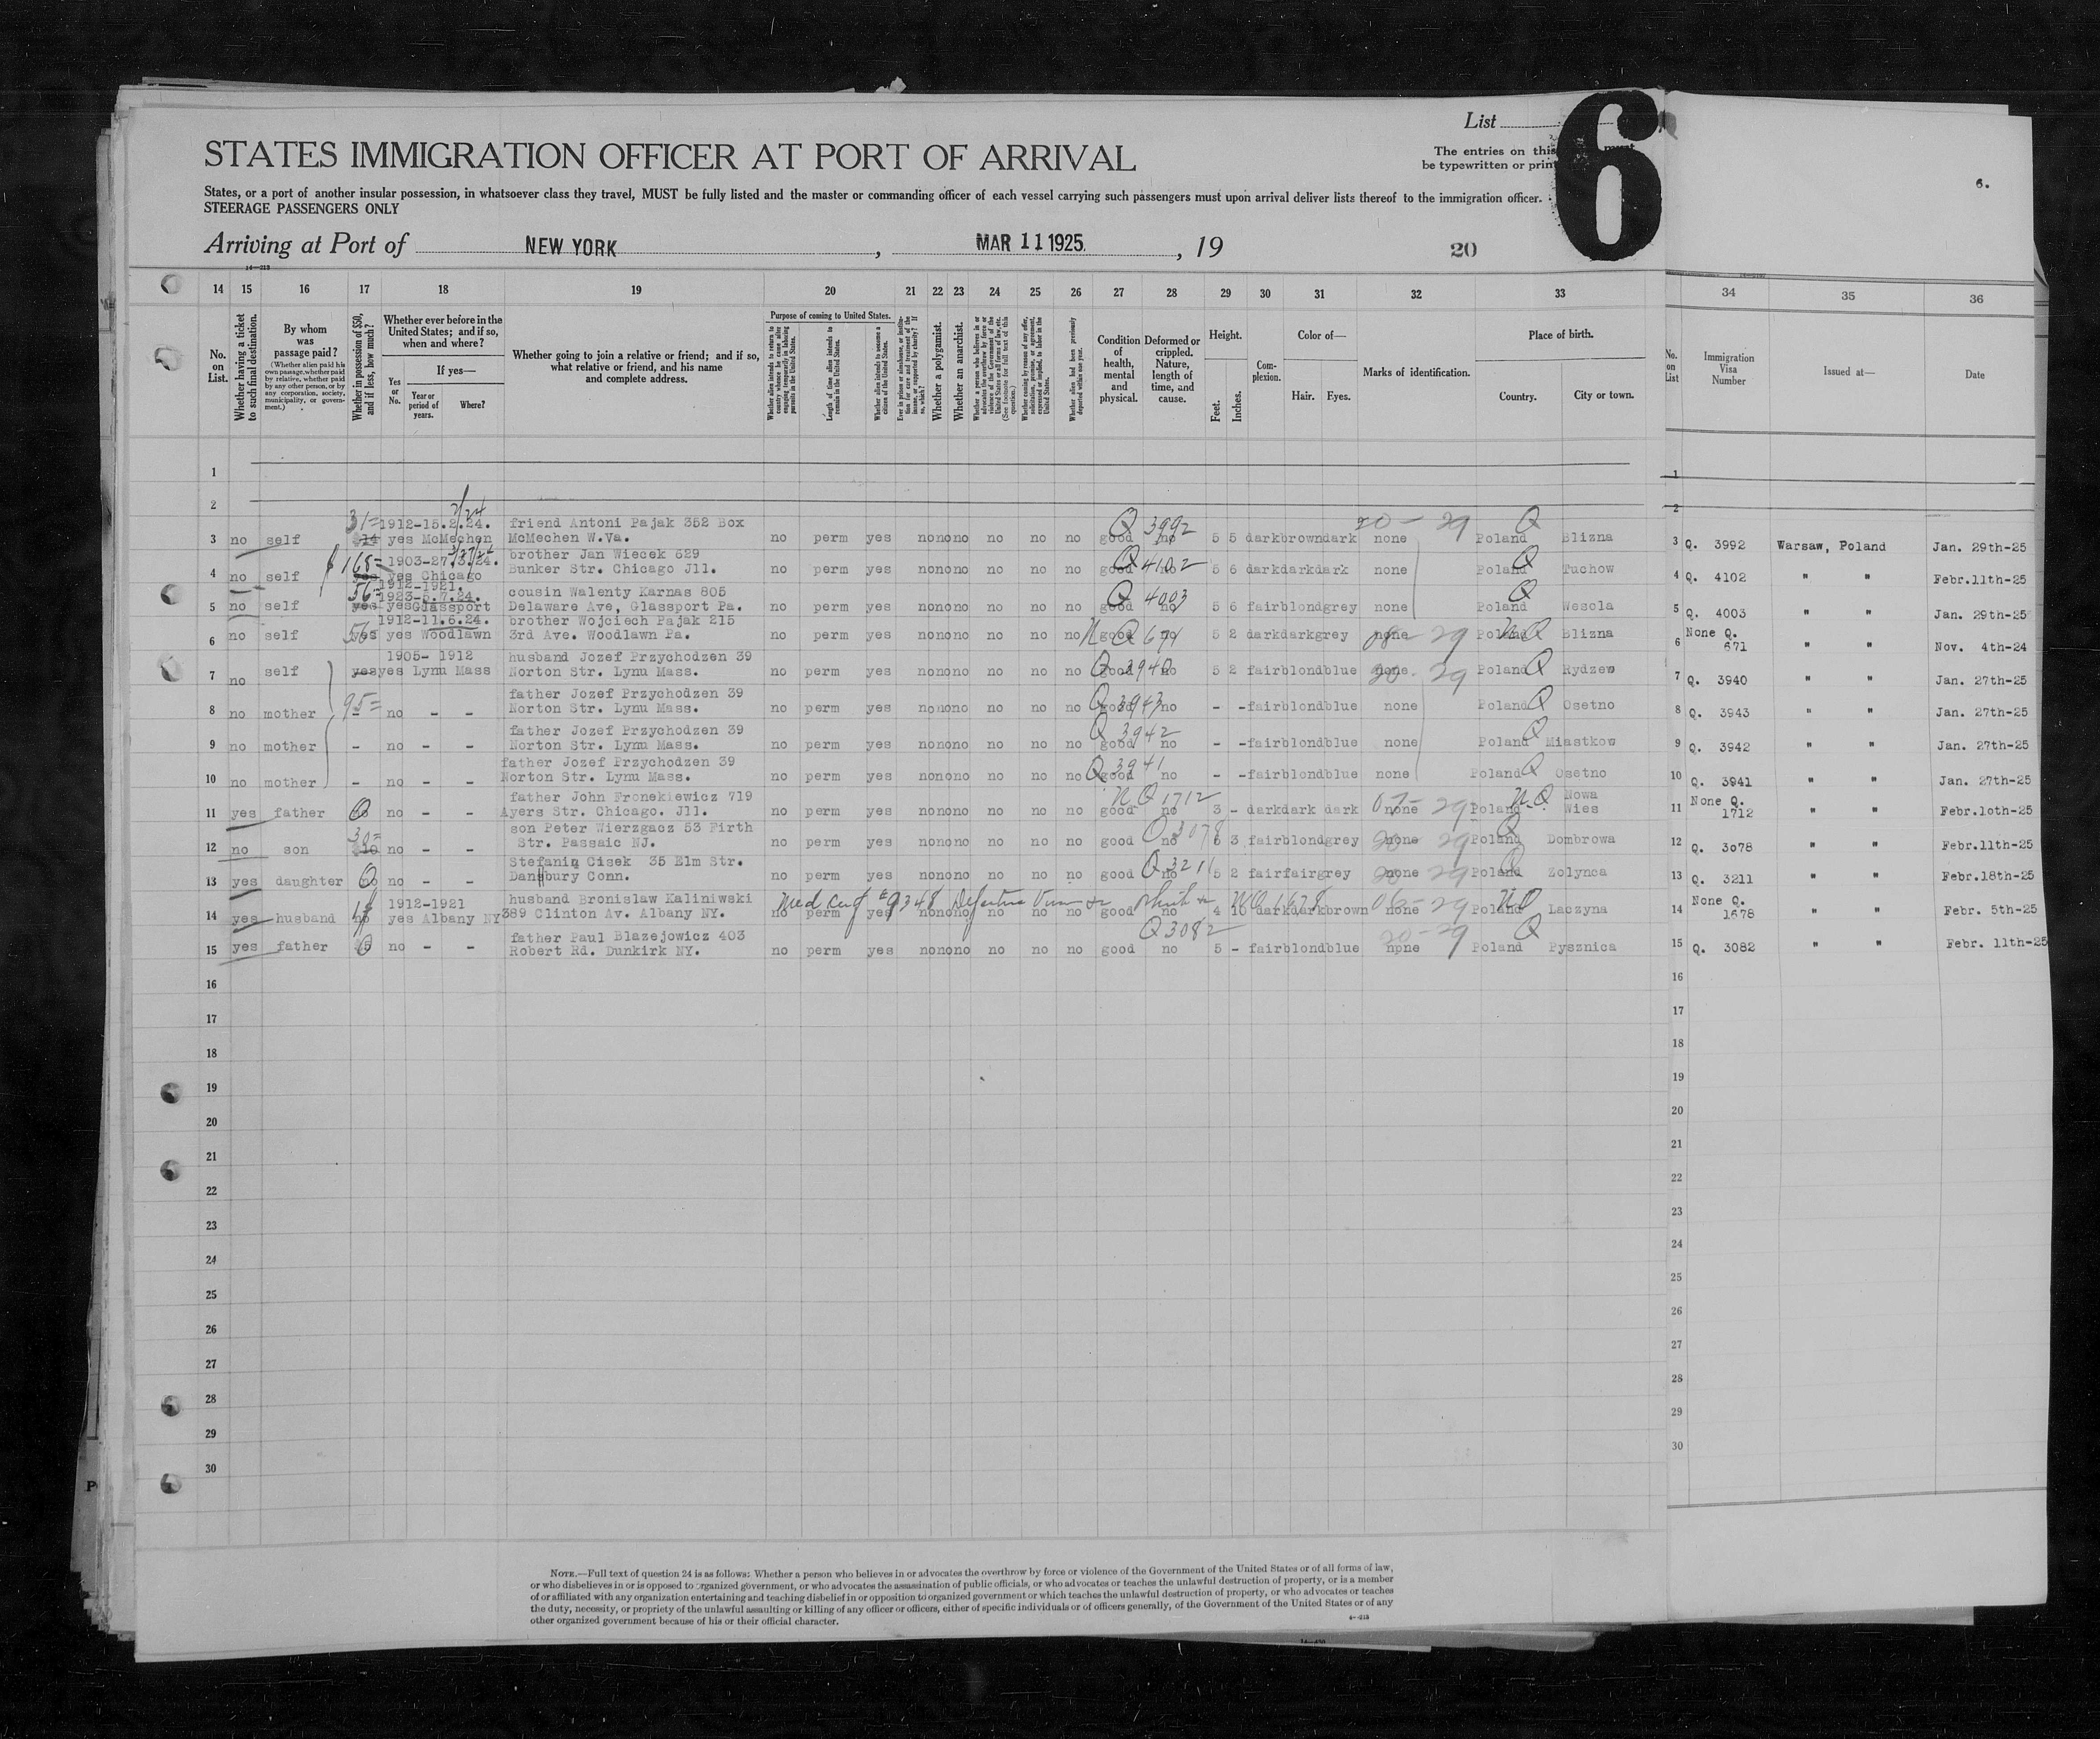 List
6
The entries on this
be typewritten or prin
STATES IMMIGRATION OFFICER AT PORT OF ARRIVAL
6.
States, or a port of another insular possession, in whatsoever class they travel, MUST be fully listed and the master or commanding officer of each vessel carrying such passengers must upon arrival deliver lists thereof to the immigration officer.
STEERAGE PASSENGERS ONLY
Arriving at Port of NEW YORK, MAR 11 1925, 19 20
14 15 16 17 18 19 20 21 22 23 24 25 26 27 28 29 30 31 32 33 34 35 36
No. on List.
Whether having a ticket to such final destination.
By whom was passage paid?
(Whether alien paid his own passage, whether paid by relative, whether paid by any other person, or by any corporation, society, municipality, or government.)
Whether in possession of $50, and if less, how much?
Whether ever before in the United States; and if so, when and where?
Yes or No.
If yes—
Year or period of years.
Where?
Whether going to join a relative or friend; and if so, what relative or friend, and his name and complete address.
Purpose of coming to United States.
Whether alien intends to return to country whence he came after engaging temporarily in laboring pursuits in the United States.
Length of time alien intends to remain in the United States.
Whether alien intends to become a citizen of the United States.
Whether a polygamist.
Whether an anarchist.
Condition of health, mental and physical.
Deformed or crippled. Nature, length of time, and cause.
Height.
Feet.
Inches.
Complexion.
Color of—
Hair. Eyes.
Marks of identification.
Place of birth.
Country. City or town.
No. on List
Immigration Visa Number
Issued at—
Date
1 1
2 2
31= 1912-15.2.24. friend Antoni Pajak 352 Box Q 3992 20 - 29 Q
3 no self yes McMechen McMechen W.Va. no perm yes no no no no no no good no 5 5 dark brown dark none Poland Blizna 3 Q. 3992 Warsaw, Poland Jan. 29th-25
$168= 1903-27.3.24. brother Jan Wiecek 629 Q 4102 Q
4 no self yes yes Chicago Bunker Str. Chicago Jll. no perm yes no no no no no no good no 5 6 dark dark dark none Poland Tuchow 4 Q. 4102 " " Febr.11th-25
56= 1912-1921. 1923-5.7.24. cousin Walenty Karnas 805 Q 4003 Q
5 no self yes yes Glassport Delaware Ave, Glassport Pa. no perm yes no no no no no no good no 5 6 fair blond grey none Poland Wesola 5 Q. 4003 " " Jan. 29th-25
1912-11.6.24. brother Wojciech Pajak 215
6 no self yes yes Woodlawn 3rd Ave. Woodlawn Pa. no perm yes no no no no no no good no 5 2 dark dark grey none 08 - 29 Poland NQ Blizna 6 None Q. 671 " " Nov. 4th-24
1905- 1912 husband Jozef Przychodzen 39
7 no self yes yes Lynu Mass Norton Str. Lynu Mass. no perm yes no no no no no no good Q 3940 no 5 2 fair blond blue none 20 - 29 Poland Q Rydzew 7 Q. 3940 " " Jan. 27th-25
father Jozef Przychodzen 39
8 no mother 95= - no - - Norton Str. Lynu Mass. no perm yes no no no no no no good Q 3943 no - - fair blond blue none Poland Q Osetno 8 Q. 3943 " " Jan. 27th-25
father Jozef Przychodzen 39 Q 3942 Q
9 no mother - no - - Norton Str. Lynu Mass. no perm yes no no no no no no good no - - fair blond blue none Poland Miastkow 9 Q. 3942 " " Jan. 27th-25
father Jozef Przychodzen 39 Q 3941
10 no mother - no - - Norton Str. Lynu Mass. no perm yes no no no no no no good no - - fair blond blue none Poland Q Osetno 10 Q. 3941 " " Jan. 27th-25
father John Fronekiewicz 719 N.Q 1712 N.Q. Nowa
11 yes father 0 no - - Ayers Str. Chicago. Jll. no perm yes no no no no no no good no 3 - dark dark dark none 07 - 29 Poland Wies 11 None Q. 1712 " " Febr.1oth-25
30= son Peter Wierzgacz 53 Firth Q 3078 Q
12 no son no - - Str. Passaic NJ. no perm yes no no no no no no good no 6 3 fair blond grey none 20 29 Poland Dombrowa 12 Q. 3078 " " Febr.11th-25
Stefania Cisek 35 Elm Str. Q 3211 Q
13 yes daughter 0 no no - - Danbury Conn. no perm yes no no no no no no good no 5 2 fair fair grey none 20 29 Poland Zolynca 13 Q. 3211 " " Febr.18th-25
1912-1921 husband Bronislaw Kaliniwski Med Cert #9348 Defective Vision NQ 1678 NQ
14 yes husband no yes Albany NY 389 Clinton Av. Albany NY. no perm yes no no no no no no good no 4 10 dark dark brown none 06 - 29 Poland Laczyna 14 None Q. 1678 " " Febr. 5th-25
father Paul Blazejowicz 403 Q 3082 20-29 Q
15 yes father 0 no - - Robert Rd. Dunkirk NY. no perm yes no no no no no no good no 5 - fair blond blue none Poland Pysznica 15 Q. 3082 " " Febr. 11th-25
16 16
17 17
18 18
19 19
20 20
21 21
22 22
23 23
24 24
25 25
26 26
27 27
28 28
29 29
30 30
NOTE.—Full text of question 24 is as follows: Whether a person who believes in or advocates the overthrow by force or violence of the Government of the United States or of all forms of law,
or who disbelieves in or is opposed to organized government, or who advocates the assassination of public officials, or who advocates or teaches the unlawful destruction of property, or is a member
of or affiliated with any organization entertaining and teaching disbelief in or opposition to organized government or which teaches the unlawful destruction of property, or who advocates or teaches
the duty, necessity, or propriety of the unlawful assaulting or killing of any officer or officers, either of specific individuals or of officers generally, of the Government of the United States or of any
other organized government because of his or their official character.